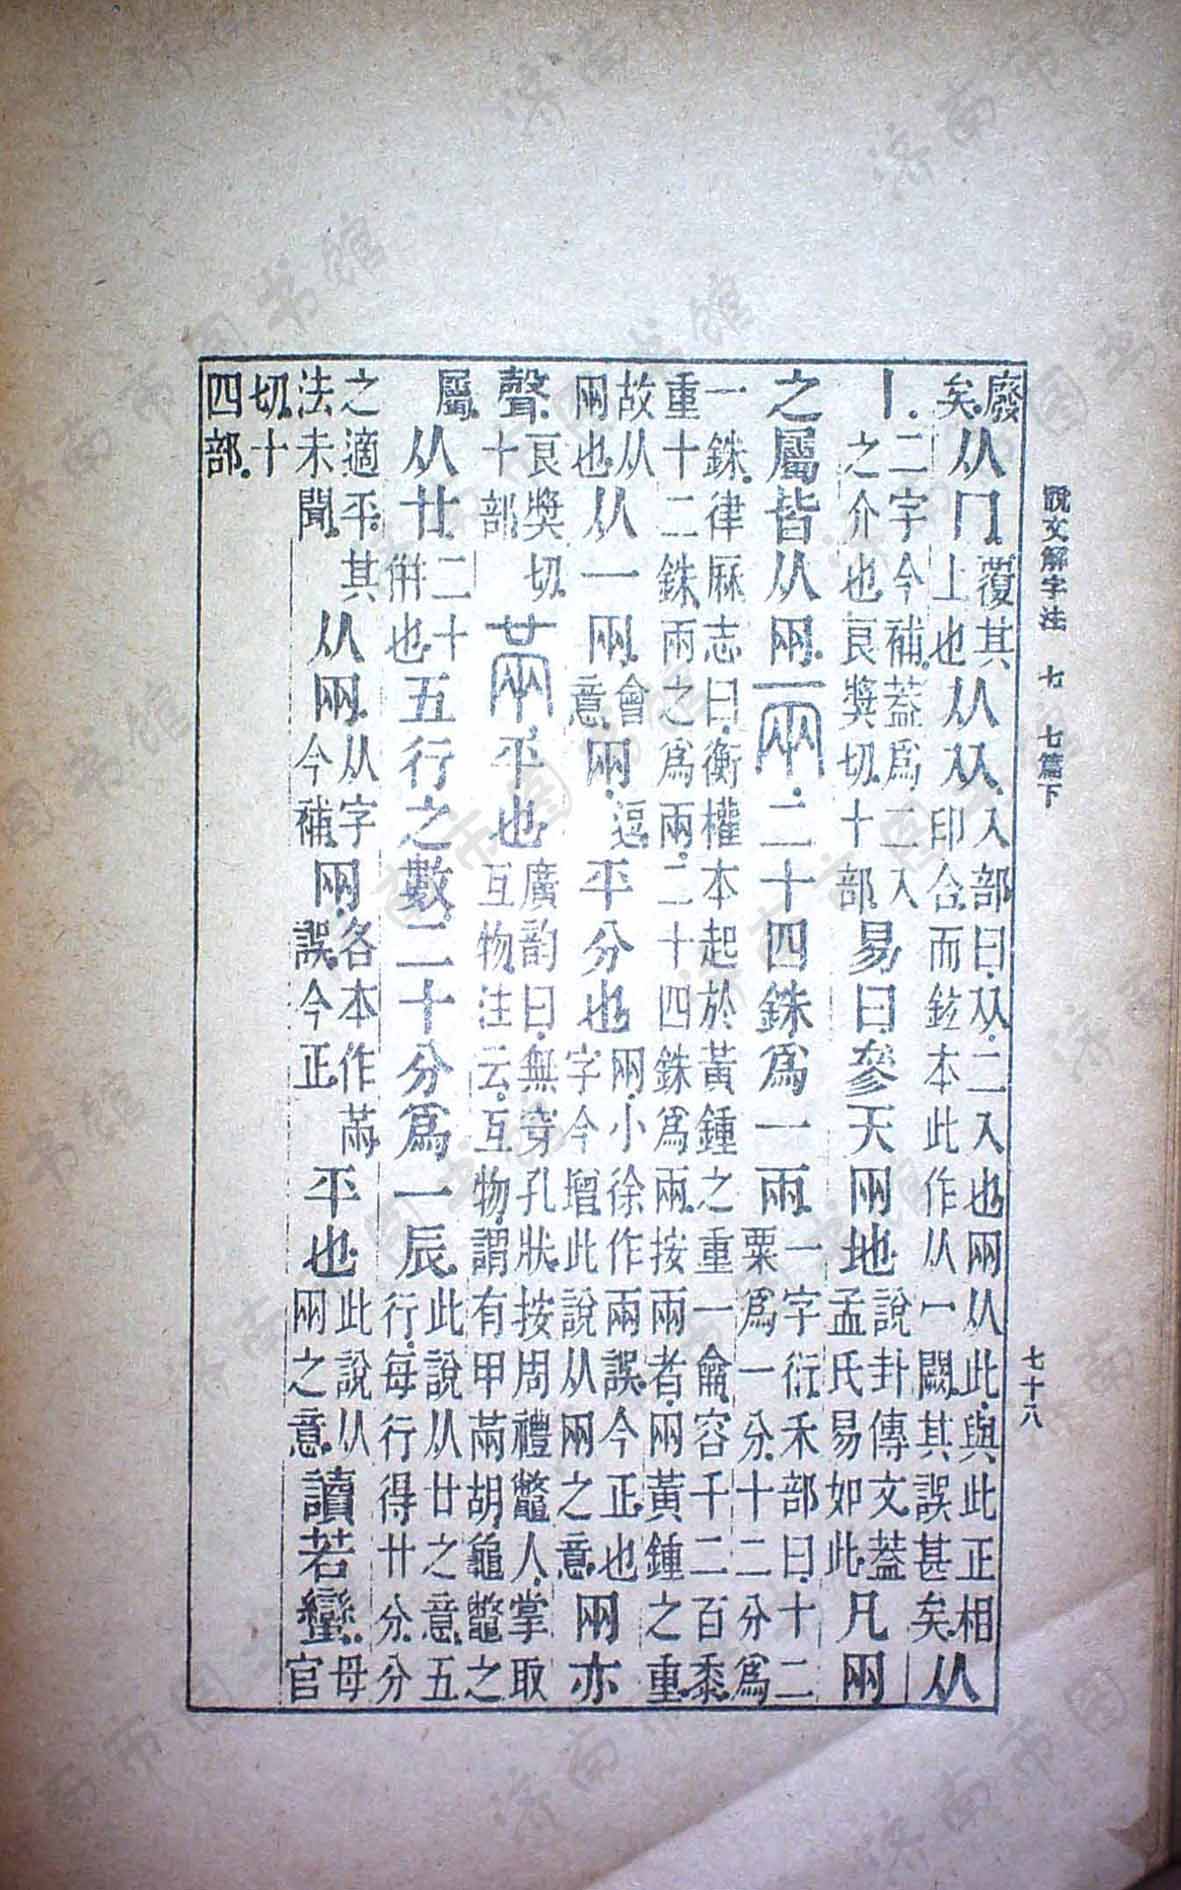 說文解字注　七　七篇下　七十八
廢矣。从冂。覆其上也。从从。入部曰。从。二入也。㒳从此。與此正相印合。而鉉本此作从一。闕。其誤甚矣。从
丨。二字今補。葢爲二入之介也。良奬切。十部。易曰參天㒳地。說卦傳文。葢孟氏易如此。凡㒳
之屬皆从㒳。兩。二十四銖爲一兩。一字衍。禾部曰。十二粟爲一分。十二分爲
一銖。律厤志曰。衡權本起於黃鍾之重。一龠容千二百黍。重十二銖。㒳之爲兩。二十四銖爲兩。按兩者。㒳黃鍾之重。
故从㒳也。从一㒳。會意。㒳。逗。平分也。㒳。小徐作兩。誤。今正。也字今增。此說从㒳之意。㒳亦
聲。良奬切。十部。㒼。平也。廣韵曰。無穿孔狀。按周禮鼈人。掌取互物。注云。互物。謂有甲㒼胡。龜鼈之
屬。从廿。二十倂也。五行之數。二十分爲一辰。此說从廿之意。五行。每行得廿分。分
之適平。其法未聞。从㒳。从字今補。㒳。各本作㒼。誤。今正。平也。此說从㒳之意。讀若蠻。母官
切。十四部。
济南市图书馆